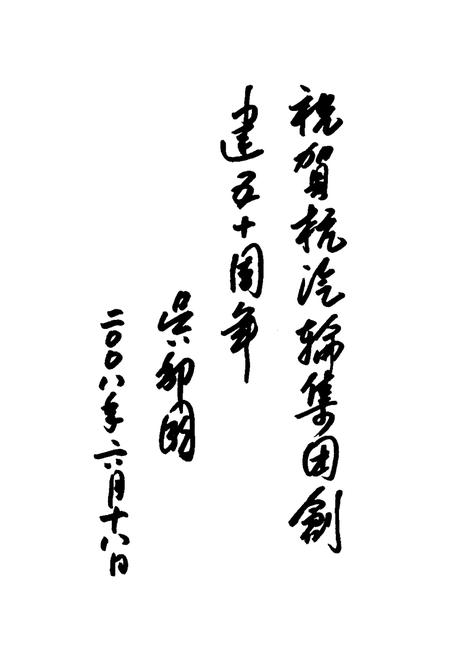 祝賀杭汽輪集团創
建五十周年
吳仲明
二〇〇八年六月十八日